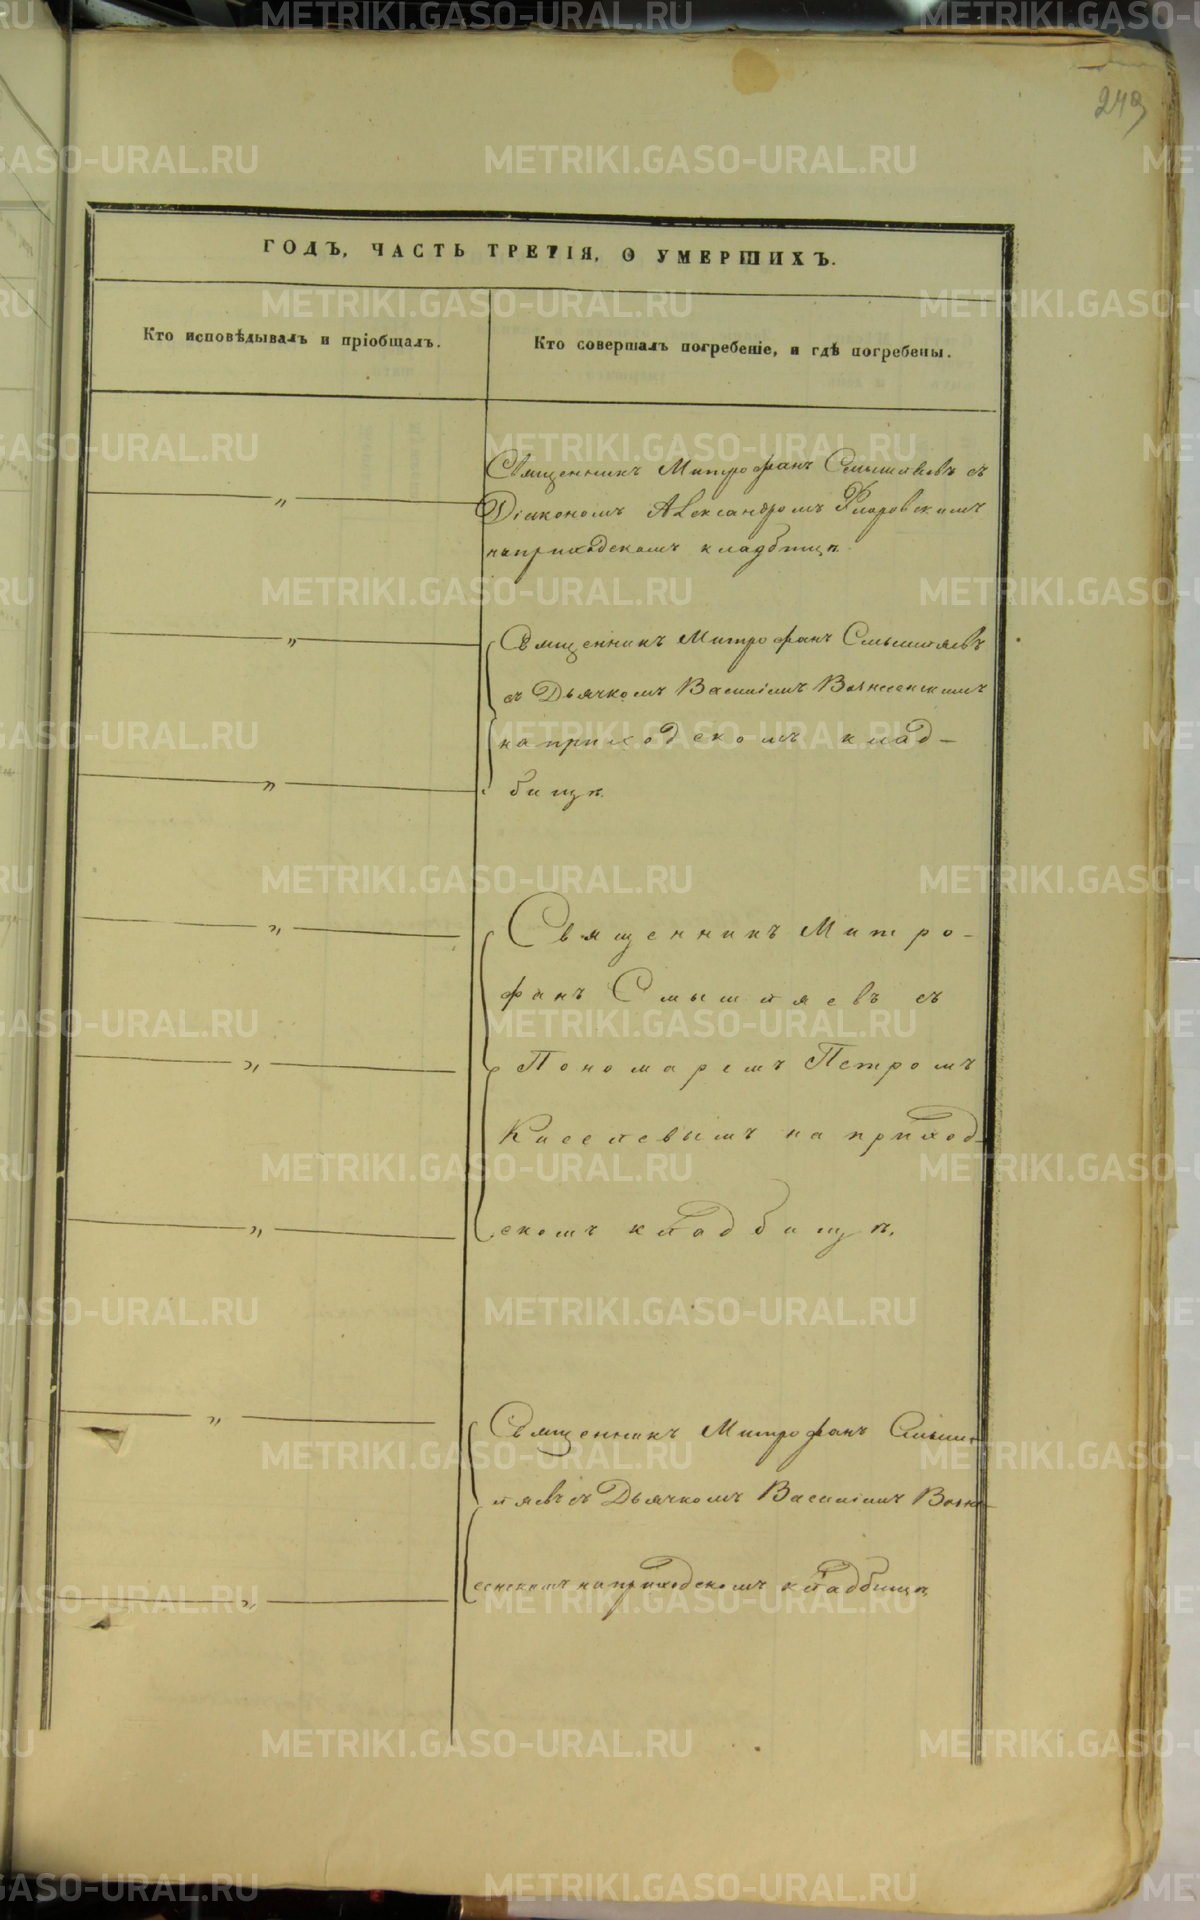 249
ГОДЪ, ЧАСТЬ ТРЕТІЯ, О УМЕРШИХЪ.
Кто исповѣдывалъ и пріобщалъ.
Кто совершалъ погребеніе, и гдѣ погребены.
Священникъ Митрофанъ Смышляевъ съ
„
Діакономъ Александромъ Флоровскимъ
на приходскомъ кладбищѣ.
„
Священникъ Митрофанъ Смышляевъ
съ Дьячкомъ Василіемъ Вознесенскимъ
на приходскомъ клад-
„
бищѣ.
„
Священникъ Митро-
фанъ Смышляевъ съ
„
Пономаремъ Петромъ
Киселевымъ на приход-
„
скомъ кладбищѣ.
„
Священникъ Митрофанъ Смыш-
ляевъ съ Дьячкомъ Василіемъ Возне-
сенскимъ на приходскомъ кладбищѣ
„
METRIKI.GASO-URAL.RU